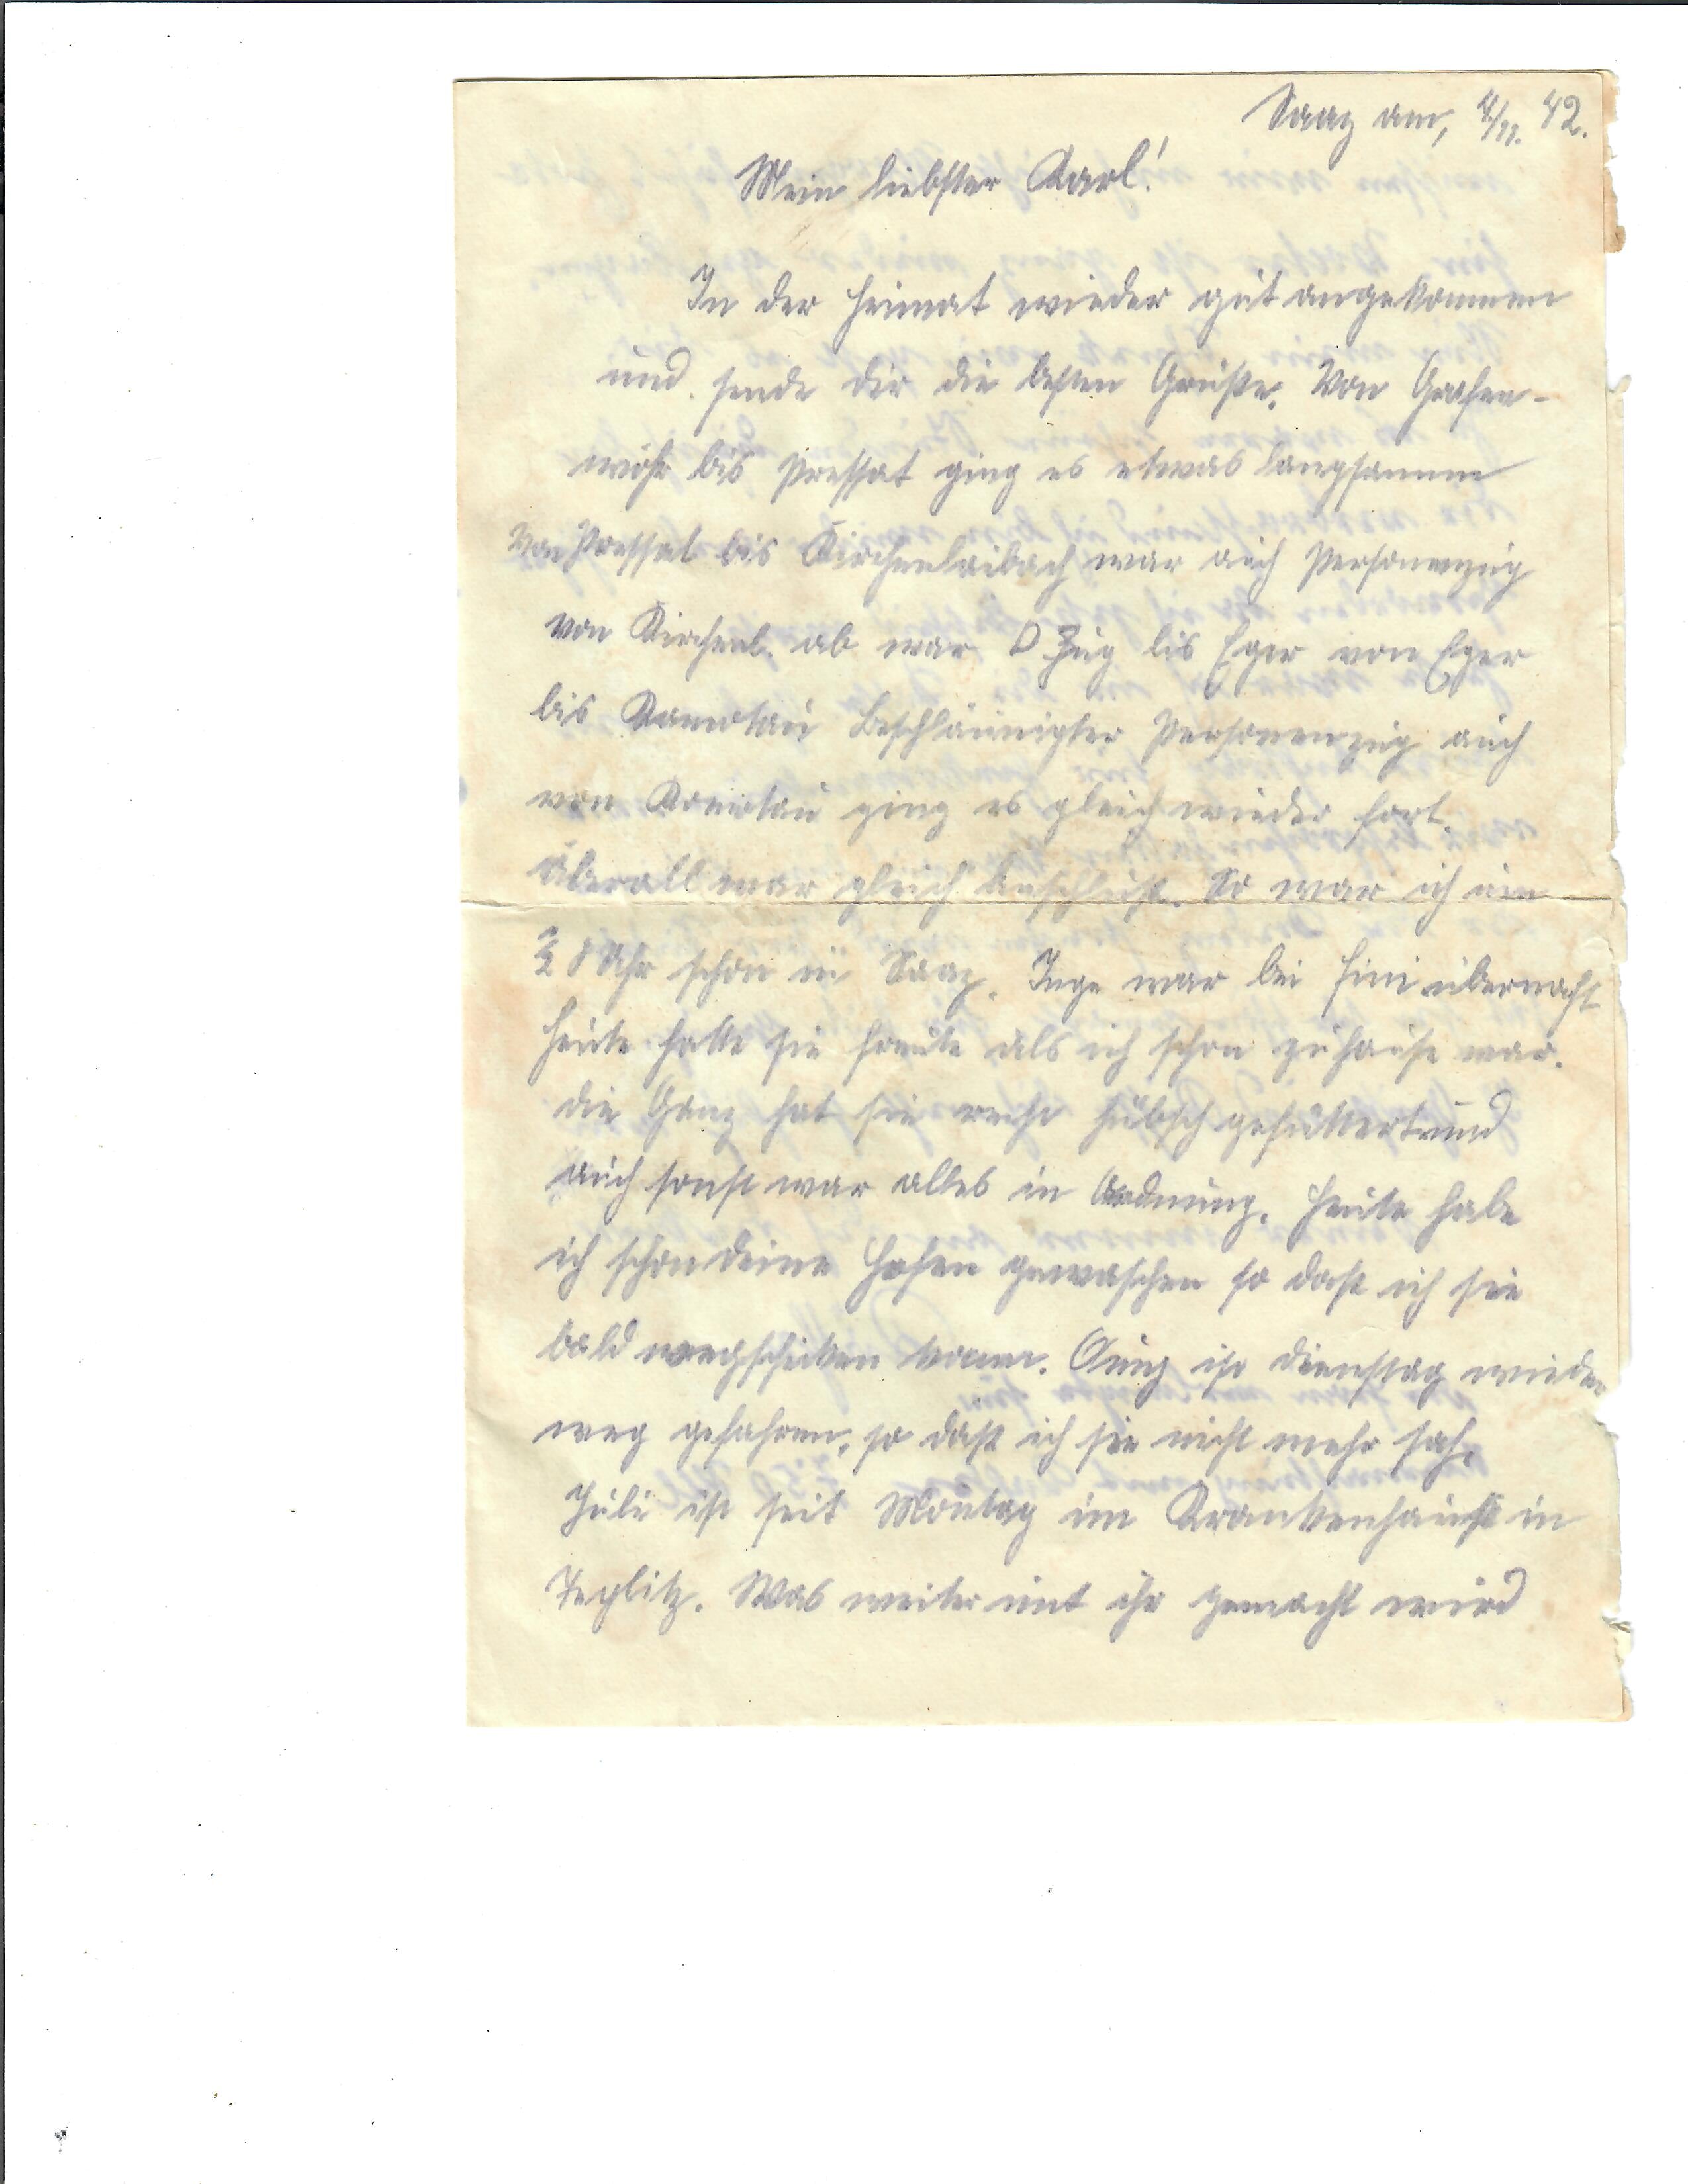 Saaz am, 4/11. 42.
Mein liebster Karl!
In der Heimat wieder gut angekommen
und sende dir die besten Grüße. Von Grafen-
wöhr bis Pressat ging es etwas langsamm
Von Pressat bis Kirchenlaibach war auch Personenzug
von Kirchenl. ab war D Zug bis Eger von Eger
bis Komotau Beschläunigter Personenzug auch
von Komotau ging es gleich wieder fort.
Überall war gleich Anschluß. So war ich um
8 Uhr schon in Saaz. Inge war bei Fini übernacht
heute hatte sie Freude als ich schon zuhause war.
die Ganz hat sie recht hübsch gefüttert und
auch sonst war alles in Ordnung. Heute habe
ich schon deine Hosen gewaschen so daß ich sie
bald wegschicken kann. ist Dienstag wieder
weg gefahren, so daß ich sie nicht mehr sah.
Juli ist seit Montag im Krankenhauß in
Teplitz. Was weiter mit ihr gemacht wird